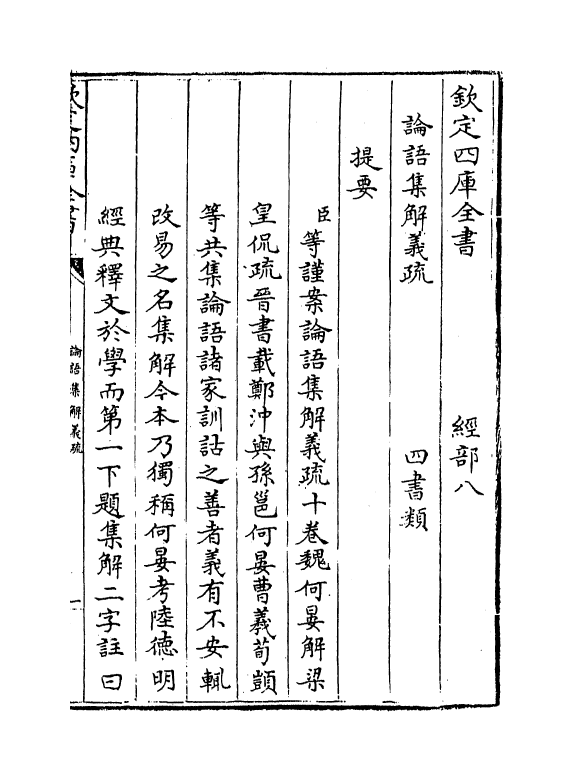 欽定四庫全書　　　　經部八
論語集解義疏　　　　四書類
提要
臣等謹案論語集解義疏十卷魏何晏解梁
皇侃疏晉書載鄭沖與孫邕何晏曹羲荀顗
等共集論語諸家訓詁之善者義有不安輒
改易之名集解今本乃獨稱何晏考陸德明
經典釋文於學而第一下題集解二字註曰
欽定四庫全書
論語集解義疏
一